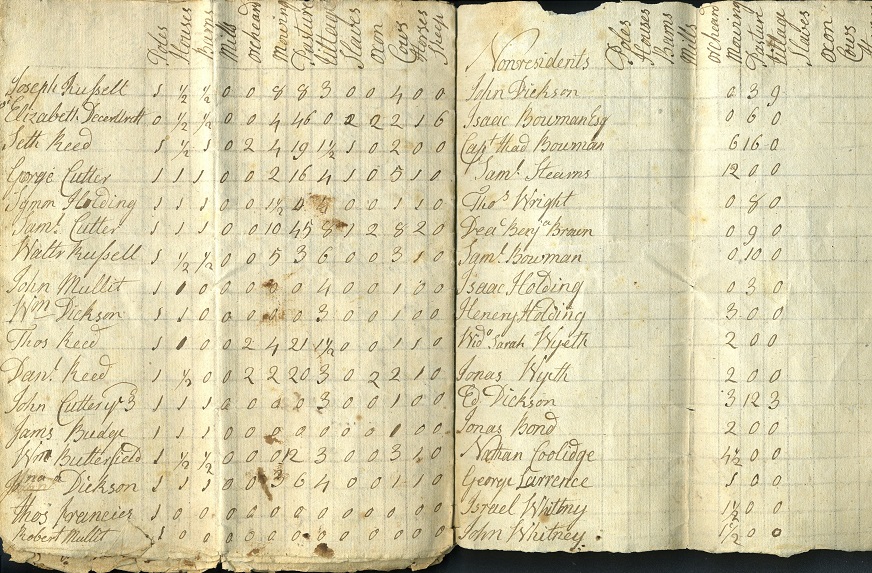 Poles Houses Barns Mills Orcheard Mowing Pasture Tillage Slaves Oxon Cows Horses Sheep
Joseph Russell 1 ½ ½ 0 0 8 8 3 0 0 4 0 0
Elizabeth 0 ½ ½ 0 0 4 46 0 2 2 2 1 6
Seth Reed 1 ½ 1 0 2 4 19 1½ 1 0 2 0 0
Gorge Cutter 1 1 1 0 0 2 16 4 1 0 5 1 0
Holding 1 1 1 0 0 1½ 0 0 0 1 1 0
Saml. Cutter 1 1 1 0 0 10 45 8 1 2 8 2 0
Waltr Russell 1 ½ ½ 0 0 5 3 6 0 0 3 1 0
John Mullit 1 1 0 0 0 0 0 4 0 0 1 0 0
Wm Dickson 1 1 0 0 0 0 0 3 0 0 1 0 0
Thos Reed 1 1 0 0 2 4 21 1½ 0 0 1 1 0
Danl. Reed 1 ½ 0 0 2 2 20 3 0 2 2 1 0
John Cutter yr 3 1 1 1 0 0 0 0 3 0 0 1 0 0
Jams Budge 1 1 1 0 0 0 0 0 0 0 1 0 0
Wm Butterfield 1 ½ ½ 0 0 0 12 3 0 0 3 4 0
Dickson 1 1 1 0 0 3 6 4 0 0 1 1 0
Thos Francies 1 0 0 0 0 0 0 0 0 0 0 0 0
Robert Mullit 1 0 0 0 0 0 0 0 0 0 0 0
Nonresidents Poles Houses Barns Mills Orcheard Mowing Pasture Tillage Slaves Oxon Cows
John Dickson 0 3 9
Isaac Bowman Esq 0 6 0
Capt Thad Bowman 6 16 0
Saml. Stearns 12 0 0
Thos. Wright 0 8 0
Dea Benja Brown 0 9 0
Saml. Bowman 0 10 0
Isaac Holding 0 3 0
Henery Holding 3 0 0
Wido Sarah Wyeth 2 0 0
Jonas Wyth 2 0 0
Ed Dickson 3 12 3
Jonas Bond 2 0 0
Nathan Coolidge 4½ 0 0
George Larrence 1 0 0
Israel Whittny 1½ 0 0
John Whitney 1½ 0 0